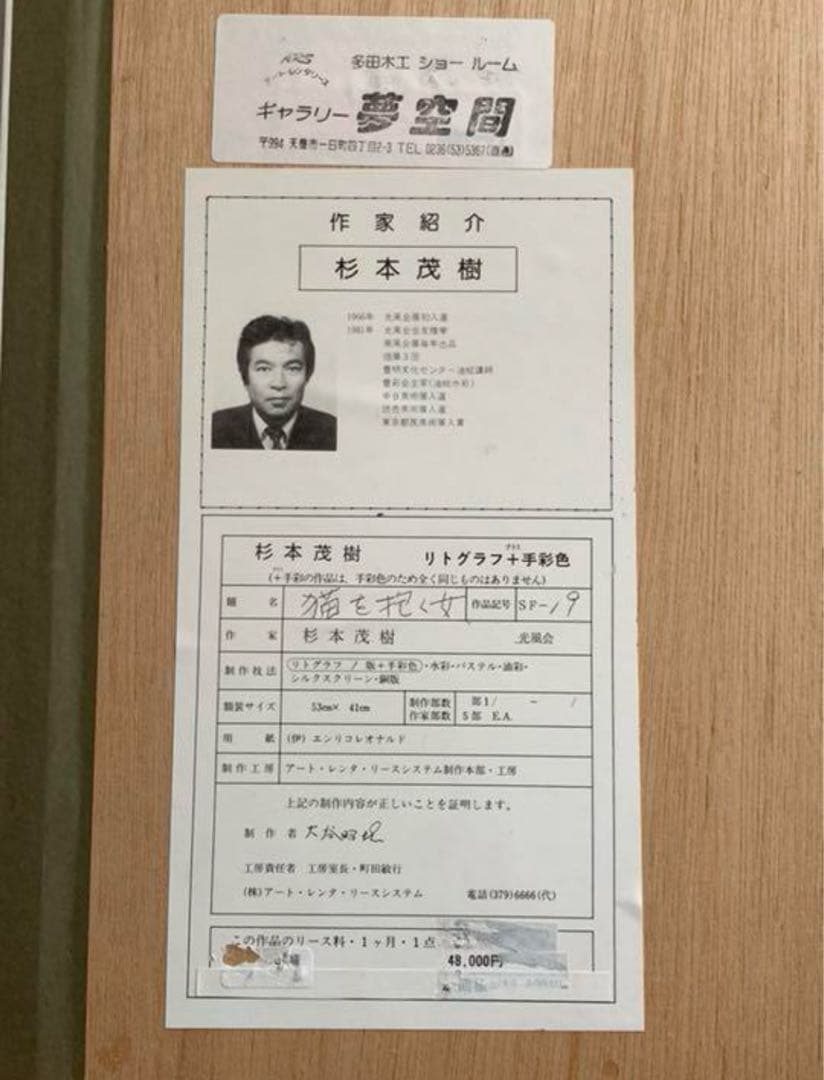 アートレンタリース
多田木工 ショー ルーム
ギャラリー 夢空間
〒994 天童市一日町四丁目2-3 TEL 0236(53)5367(直通)
作家紹介
杉本茂樹
1966年 光風会展初入選
1981年 光風会会友推挙
個展3回
豊明文化センター油絵講師
豊彩会主宰(油絵水彩)
中日美術展入選
読売美術展入選
杉本茂樹 リトグラフ+手彩色
プラス
(+手彩の作品は、手彩色のため全く同じものはありません)
題名 猫を抱く女 作品記号 SF-19
作家 杉本茂樹 光風会
制作技法 リトグラフ / 版+手彩色・水彩・パステル・油彩・
シルクスクリーン・銅版
額装サイズ 53cm× 41cm 制作部数 部1/ - /
作家部数 5部 E.A.
用紙 (伊) エンリコレオナルド
制作工房 アート・レンタ・リースシステム制作本部・工房
上記の制作内容が正しいことを証明します。
制作者
工房責任者 工房室長・町田敏行
(株)アート・レンタ・リースシステム 電話(379)6666(代)
この作品のリース料・1ヶ月・1点
48,000円